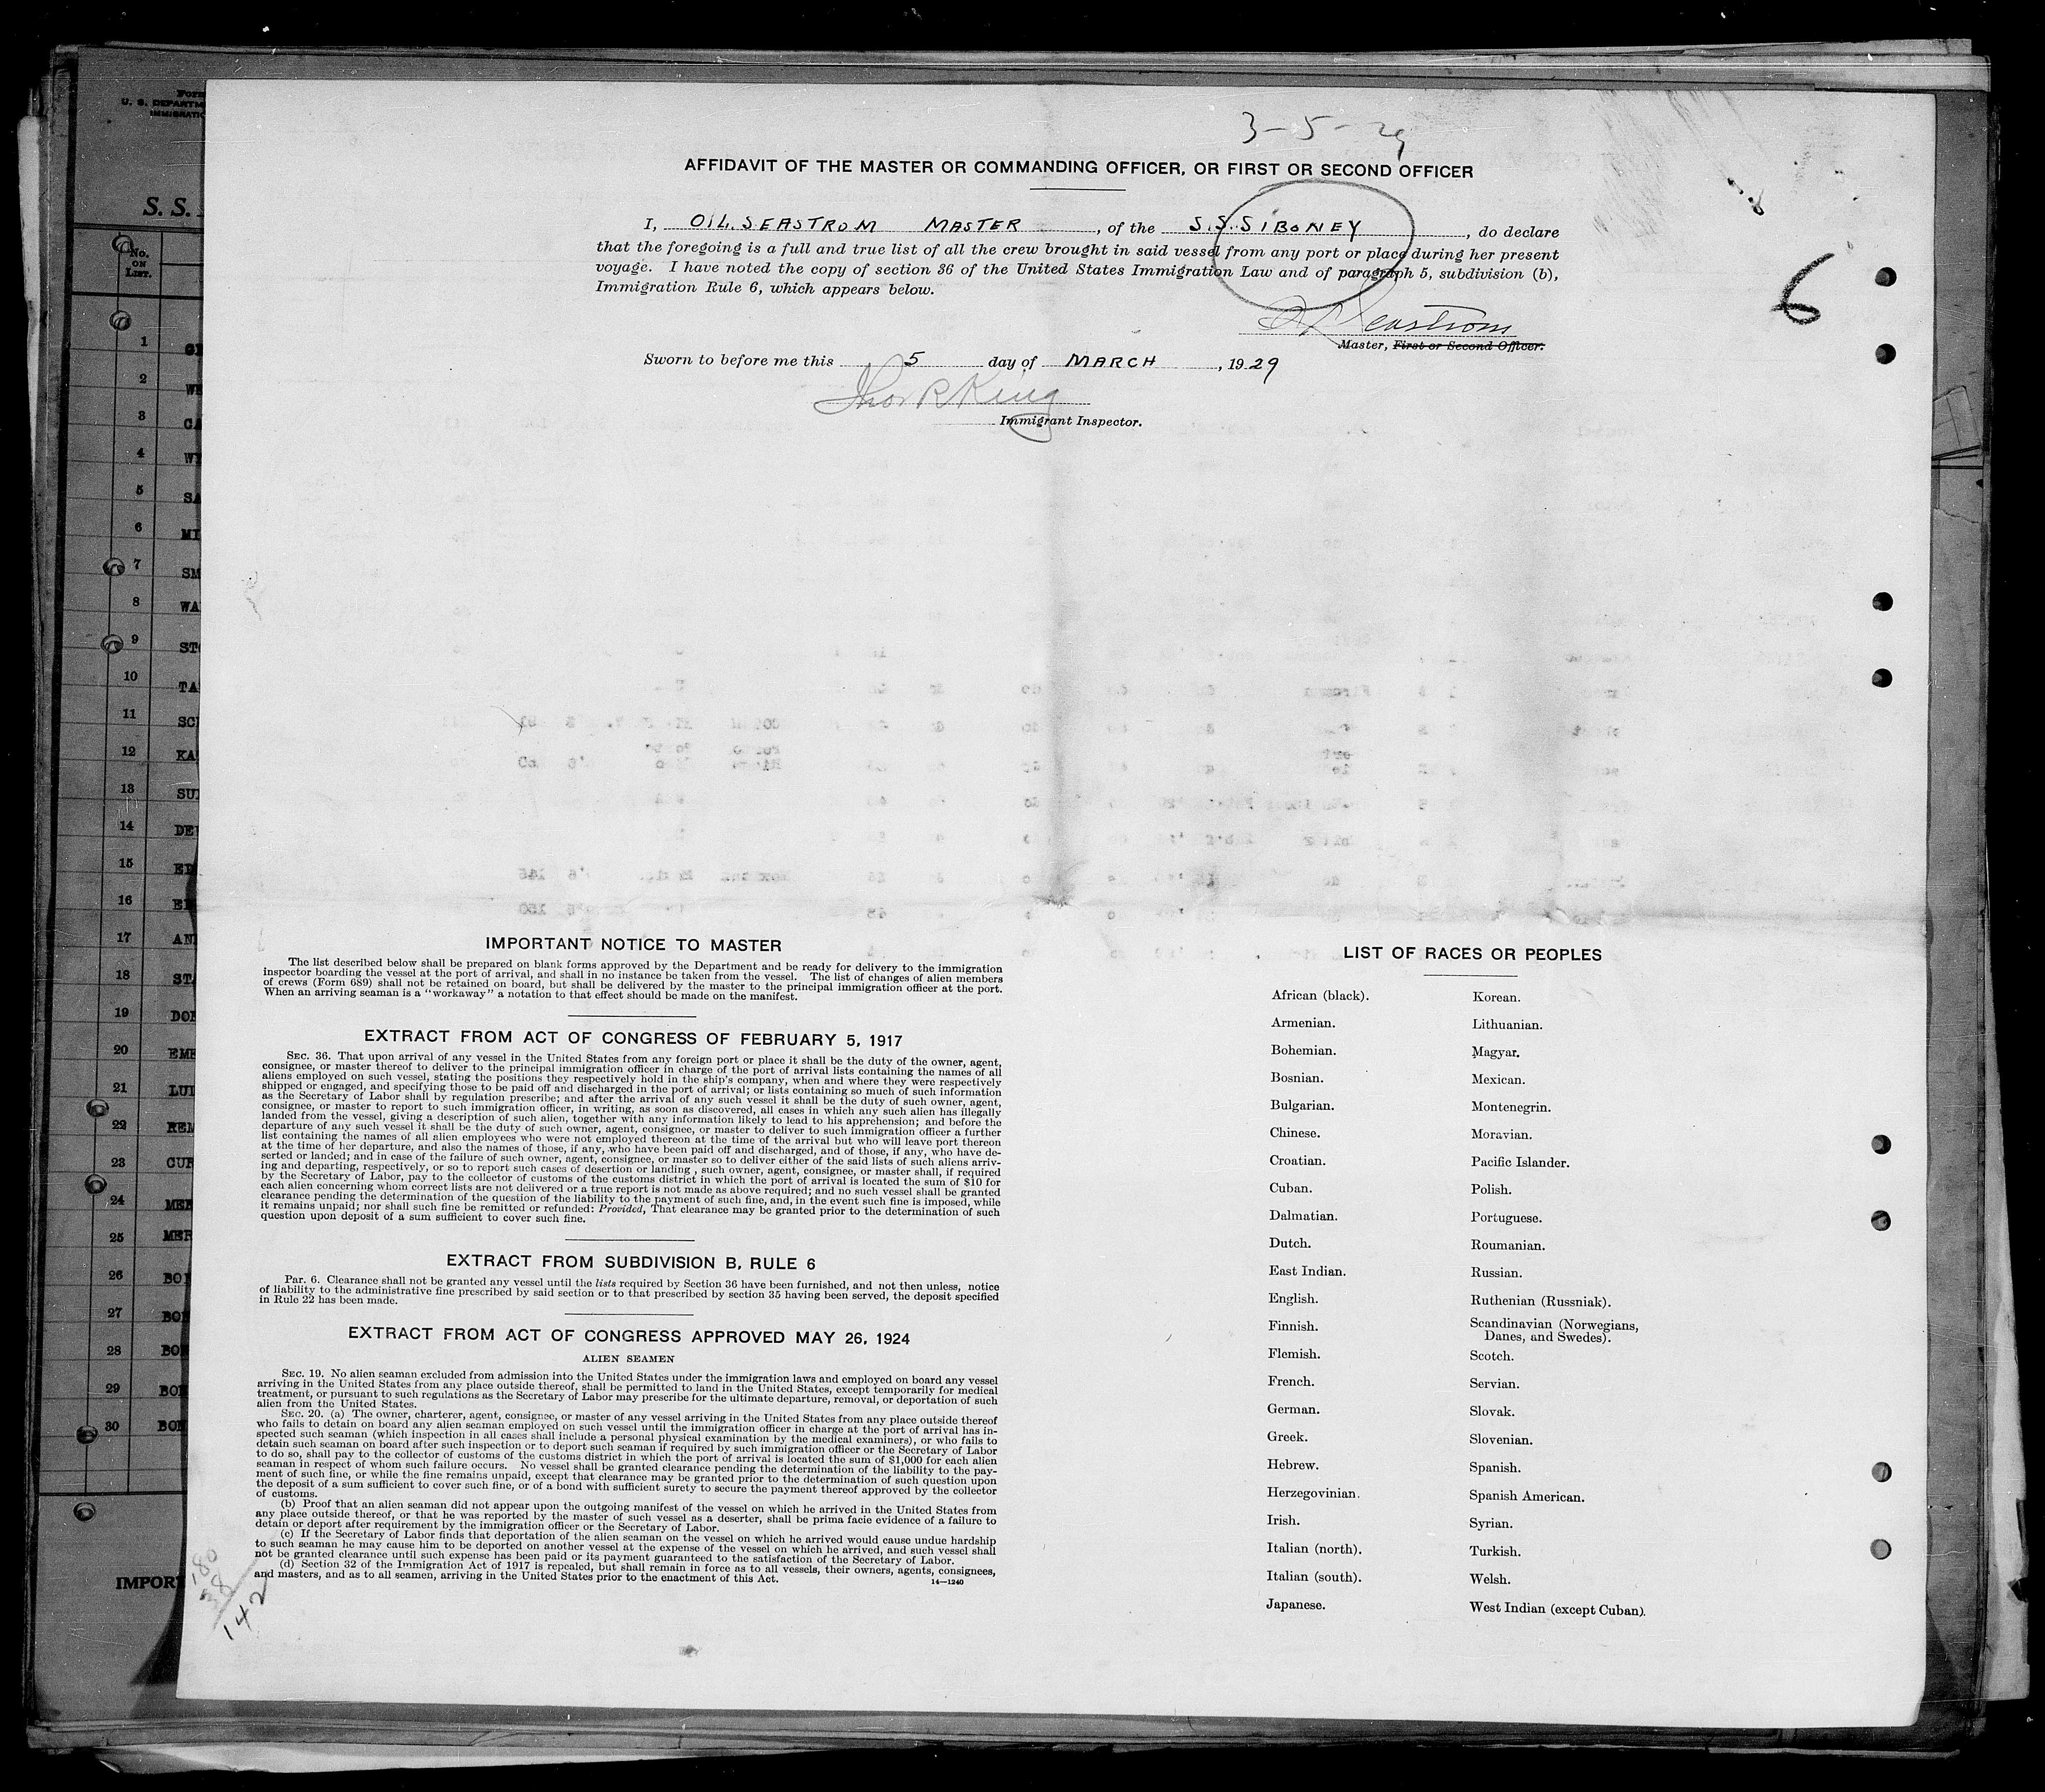 3-5-29
AFFIDAVIT OF THE MASTER OR COMMANDING OFFICER, OR FIRST OR SECOND OFFICER
I, OIL. SEASTROM MASTER, of the S.S. SIBONEY, do declare
that the foregoing is a full and true list of all the crew brought in said vessel from any port or place during her present
voyage. I have noted the copy of section 36 of the United States Immigration Law and of paragraph 5, subdivision (b),
Immigration Rule 6, which appears below.
6
Seastrom
Master, First or Second Officer.
Sworn to before me this 5 day of MARCH, 1929
Thos R King
Immigrant Inspector.
IMPORTANT NOTICE TO MASTER
The list described below shall be prepared on blank forms approved by the Department and be ready for delivery to the immigration
inspector boarding the vessel at the port of arrival, and shall in no instance be taken from the vessel. The list of changes of alien members
of crews (Form 689) shall not be retained on board, but shall be delivered by the master to the principal immigration officer at the port.
When an arriving seaman is a "workaway" a notation to that effect should be made on the manifest.
EXTRACT FROM ACT OF CONGRESS OF FEBRUARY 5, 1917
SEC. 36. That upon arrival of any vessel in the United States from any foreign port or place it shall be the duty of the owner, agent,
consignee, or master thereof to deliver to the principal immigration officer in charge of the port of arrival lists containing the names of all
aliens employed on such vessel, stating the positions they respectively hold in the ship's company, when and where they were respectively
shipped or engaged, and specifying those to be paid off and discharged in the port of arrival; or lists containing so much of such information
as the Secretary of Labor shall by regulation prescribe; and after the arrival of any such vessel it shall be the duty of such owner, agent,
consignee, or master to report to such immigration officer, in writing, as soon as discovered, all cases in which any such alien has illegally
landed from the vessel, giving a description of such alien, together with any information likely to lead to his apprehension; and before the
departure of any such vessel it shall be the duty of such owner, agent, consignee, or master to deliver to such immigration officer a further
list containing the names of all alien employees who were not employed thereon at the time of the arrival but who will leave port thereon
at the time of her departure, and also the names of those, if any, who have been paid off and discharged, and of those, if any, who have de-
serted or landed; and in case of the failure of such owner, agent, consignee, or master so to deliver either of the said lists of such aliens arriv-
ing and departing, respectively, or so to report such cases of desertion or landing, such owner, agent, consignee, or master shall, if required
by the Secretary of Labor, pay to the collector of customs of the customs district in which the port of arrival is located the sum of $10 for
each alien concerning whom correct lists are not delivered or a true report is not made as above required; and no such vessel shall be granted
clearance pending the determination of the question of the liability to the payment of such fine, and, in the event such fine is imposed, while
it remains unpaid; nor shall such fine be remitted or refunded: Provided, That clearance may be granted prior to the determination of such
question upon deposit of a sum sufficient to cover such fine.
EXTRACT FROM SUBDIVISION B, RULE 6
Par. 6. Clearance shall not be granted any vessel until the lists required by Section 36 have been furnished, and not then unless, notice
of liability to the administrative fine prescribed by said section or to that prescribed by section 35 having been served, the deposit specified
in Rule 22 has been made.
EXTRACT FROM ACT OF CONGRESS APPROVED MAY 26, 1924
ALIEN SEAMEN
SEC. 19. No alien seaman excluded from admission into the United States under the immigration laws and employed on board any vessel
arriving in the United States from any place outside thereof, shall be permitted to land in the United States, except temporarily for medical
treatment, or pursuant to such regulations as the Secretary of Labor may prescribe for the ultimate departure, removal, or deportation of such
alien from the United States.
SEC. 20. (a) The owner, charterer, agent, consignee, or master of any vessel arriving in the United States from any place outside thereof
who fails to detain on board any alien seaman employed on such vessel until the immigration officer in charge at the port of arrival has in-
spected such seaman (which inspection in all cases shall include a personal physical examination by the medical examiners), or who fails to
detain such seaman on board after such inspection or to deport such seaman if required by such immigration officer or the Secretary of Labor
to do so, shall pay to the collector of customs of the customs district in which the port of arrival is located the sum of $1,000 for each alien
seaman in respect of whom such failure occurs. No vessel shall be granted clearance pending the determination of the liability to the pay-
ment of such fine, or while the fine remains unpaid, except that clearance may be granted prior to the determination of such question upon
the deposit of a sum sufficient to cover such fine, or of a bond with sufficient surety to secure the payment thereof approved by the collector
of customs.
(b) Proof that an alien seaman did not appear upon the outgoing manifest of the vessel on which he arrived in the United States from
any place outside thereof, or that he was reported by the master of such vessel as a deserter, shall be prima facie evidence of a failure to
detain or deport after requirement by the immigration officer or the Secretary of Labor.
(c) If the Secretary of Labor finds that deportation of the alien seaman on the vessel on which he arrived would cause undue hardship
to such seaman he may cause him to be deported on another vessel at the expense of the vessel on which he arrived, and such vessel shall
not be granted clearance until such expense has been paid or its payment guaranteed to the satisfaction of the Secretary of Labor.
(d) Section 32 of the Immigration Act of 1917 is repealed, but shall remain in force as to all vessels, their owners, agents, consignees,
and masters, and as to all seamen, arriving in the United States prior to the enactment of this Act.
14—1240
180
38
142
LIST OF RACES OR PEOPLES
African (black).
Armenian.
Bohemian.
Bosnian.
Bulgarian.
Chinese.
Croatian.
Cuban.
Dalmatian.
Dutch.
East Indian.
English.
Finnish.
Flemish.
French.
German.
Greek.
Hebrew.
Herzegovinian.
Irish.
Italian (north).
Italian (south).
Japanese.
Korean.
Lithuanian.
Magyar.
Mexican.
Montenegrin.
Moravian.
Pacific Islander.
Polish.
Portuguese.
Roumanian.
Russian.
Ruthenian (Russniak).
Scandinavian (Norwegians,
Danes, and Swedes).
Scotch.
Servian.
Slovak.
Slovenian.
Spanish.
Spanish American.
Syrian.
Turkish.
Welsh.
West Indian (except Cuban).
S. S.
No.
ON
LIST.
1
2
3
4
5
6
7
8
9
10
11
12
13
14
15
16
17
18
19
20
21
22
23
24
25
26
27
28
29
30